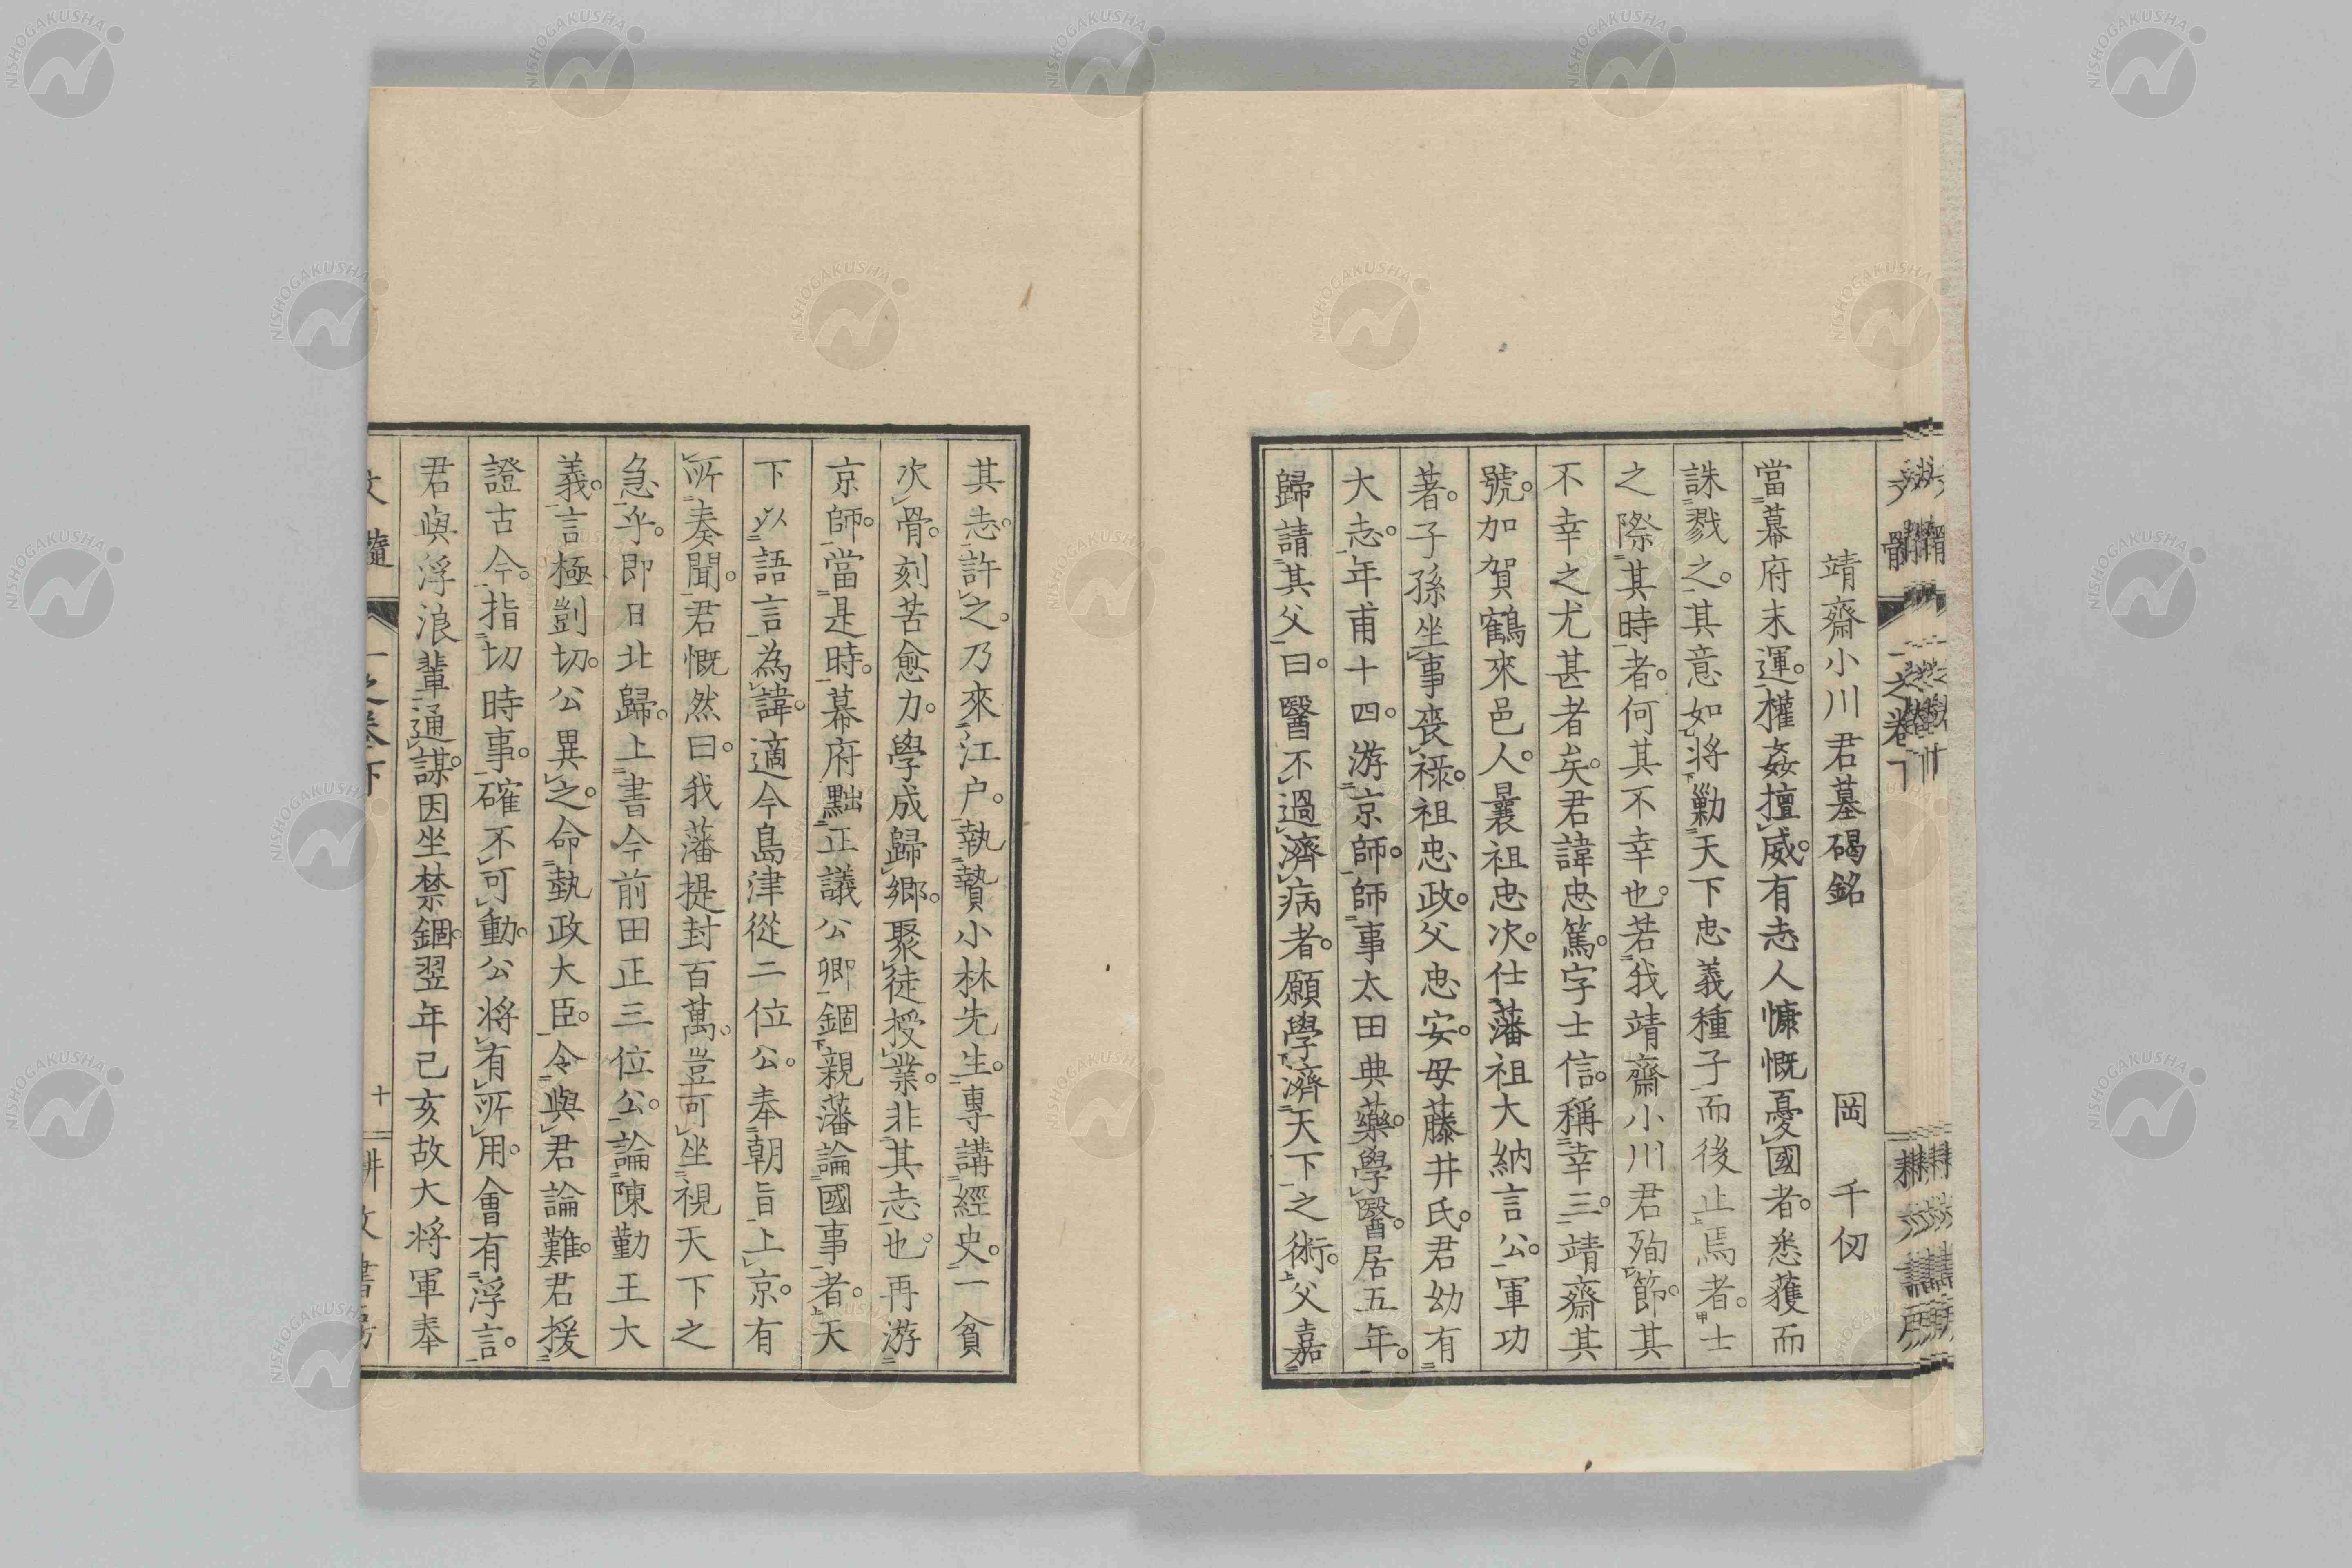 靖齋小川君墓碣銘　岡千仞
當幕府末運。權姦擅威。有志人慷慨憂國者。悉獲而
誅戮之。其意如將勦天下忠義種子而後止焉者。士
之際其時者。何其不幸也。若我靖齋小川君殉節。其
不幸之尤甚者矣。君諱忠篤。字士信。稱幸三。靖齋其
號。加賀鶴來邑人。曩祖忠次。仕藩祖大納言公。軍功
著。子孫坐事喪祿。祖忠政。父忠安。母藤井氏。君幼有
大志。年甫十四。游京師。師事太田典藥。學醫。居五年。
歸請其父曰。醫不過濟病者。願學濟天下之術。父嘉
其志。許之。乃來江戶。執贄小林先生。專講經史。一貧
次骨。刻苦愈力。學成歸鄉。聚徒授業。非其志也。再游
京師。當是時。幕府黜正議公卿。錮親藩論國事者。天
下以語言為諱。適今島津從二位公。奉朝旨上京。有
所奏聞。君慨然曰。我藩提封百萬。豈可坐視天下之
急乎。即日北歸。上書今前田正三位公。論陳勤王大
義。言極剴切。公異之。命執政大臣。令與君論難。君援
證古今。指切時事。確不可動。公將有所用。會有浮言。
君與浮浪輩通謀。因坐禁錮。翌年己亥故大將軍奉
十